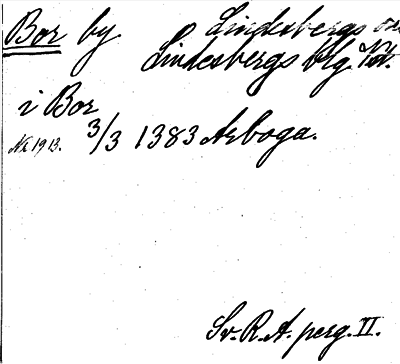 Bor by Lindesbergs
Lindesbergs blg
i Bor
Nr. 1913. 3/3 1383 Arboga.
Sv. R. A. perg. II.